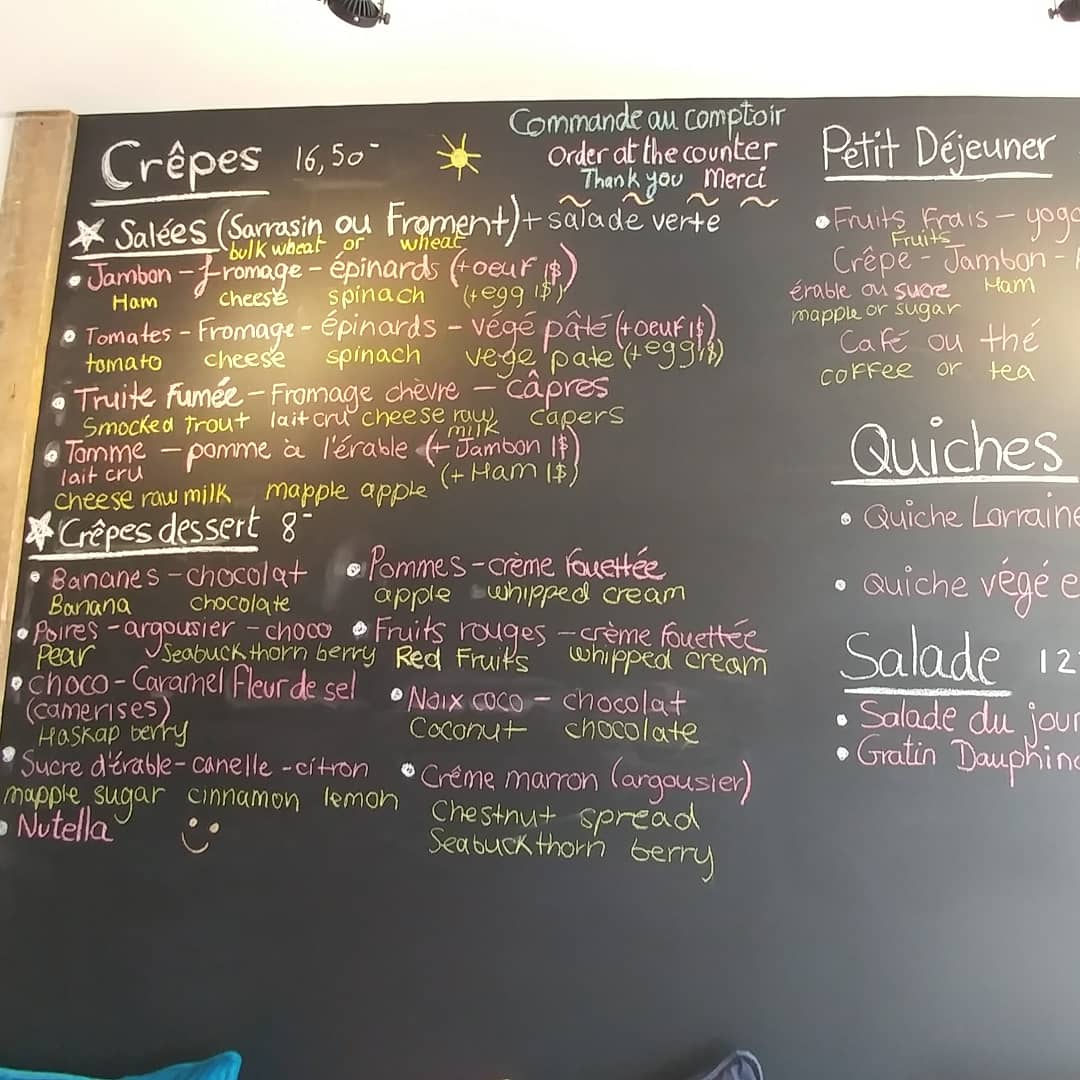 Commande au comptoir
Order at the counter
Thank you Merci
Crêpes 16,50-
Salées (Sarrasin ou Froment) + salade verte
bulk wheat or wheat
Jambon - fromage - épinards (+ oeuf 1$)
Ham cheese spinach (+ egg 1$)
Tomates - Fromage - épinards - végé pâté (+ oeuf 1$)
tomato cheese spinach vege pate (+ egg 1$)
Truite Fumée - Fromage chèvre - câpres
Smocked Trout lait cru cheese raw milk capers
Tomme - pomme à l'érable (+ Jambon 1$)
lait cru (+ Ham 1$)
cheese raw milk mapple apple
Crêpes dessert 8-
Bananes - chocolat
Banana chocolate
Pommes - crème fouettée
apple whipped cream
Poires - argousier - choco
Pear Seabuckthorn berry
Fruits rouges - crème fouettée
Red Fruits whipped cream
choco - Caramel Fleur de sel
(camerises)
Haskap berry
Noix coco - chocolat
Coconut chocolate
Sucre d'érable - canelle - citron
mapple sugar cinnamon lemon
Crême marron (argousier)
Chestnut spread
Seabuckthorn berry
Nutella
Petit Déjeuner
Fruits Frais - yog
Fruits
Crêpe - Jambon -
érable ou sucre Ham
mapple or sugar
Café ou thé
coffee or tea
Quiches
Quiche Lorraine
Quiche végé e
Salade 12
Salade du jour
Gratin Dauphino